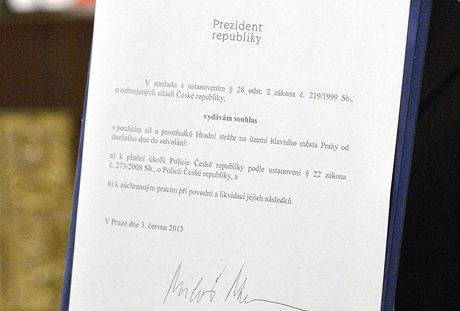 Prezident
republiky
V souladu s ustanovením § 28 odst. 2 zákona č. 219/1999 Sb.,
o ozbrojených silách České republiky,
vydávám souhlas
s použitím sil a prostředků Hradní stráže na území hlavního města Prahy od
dnešního dne do odvolání:
a) k plnění úkolů Policie České republiky podle ustanovení § 22 zákona
č. 273/2008 Sb., o Policii České republiky, a
b) k záchranným pracím při povodni a likvidaci jejích následků.
V Praze dne 3. června 2013